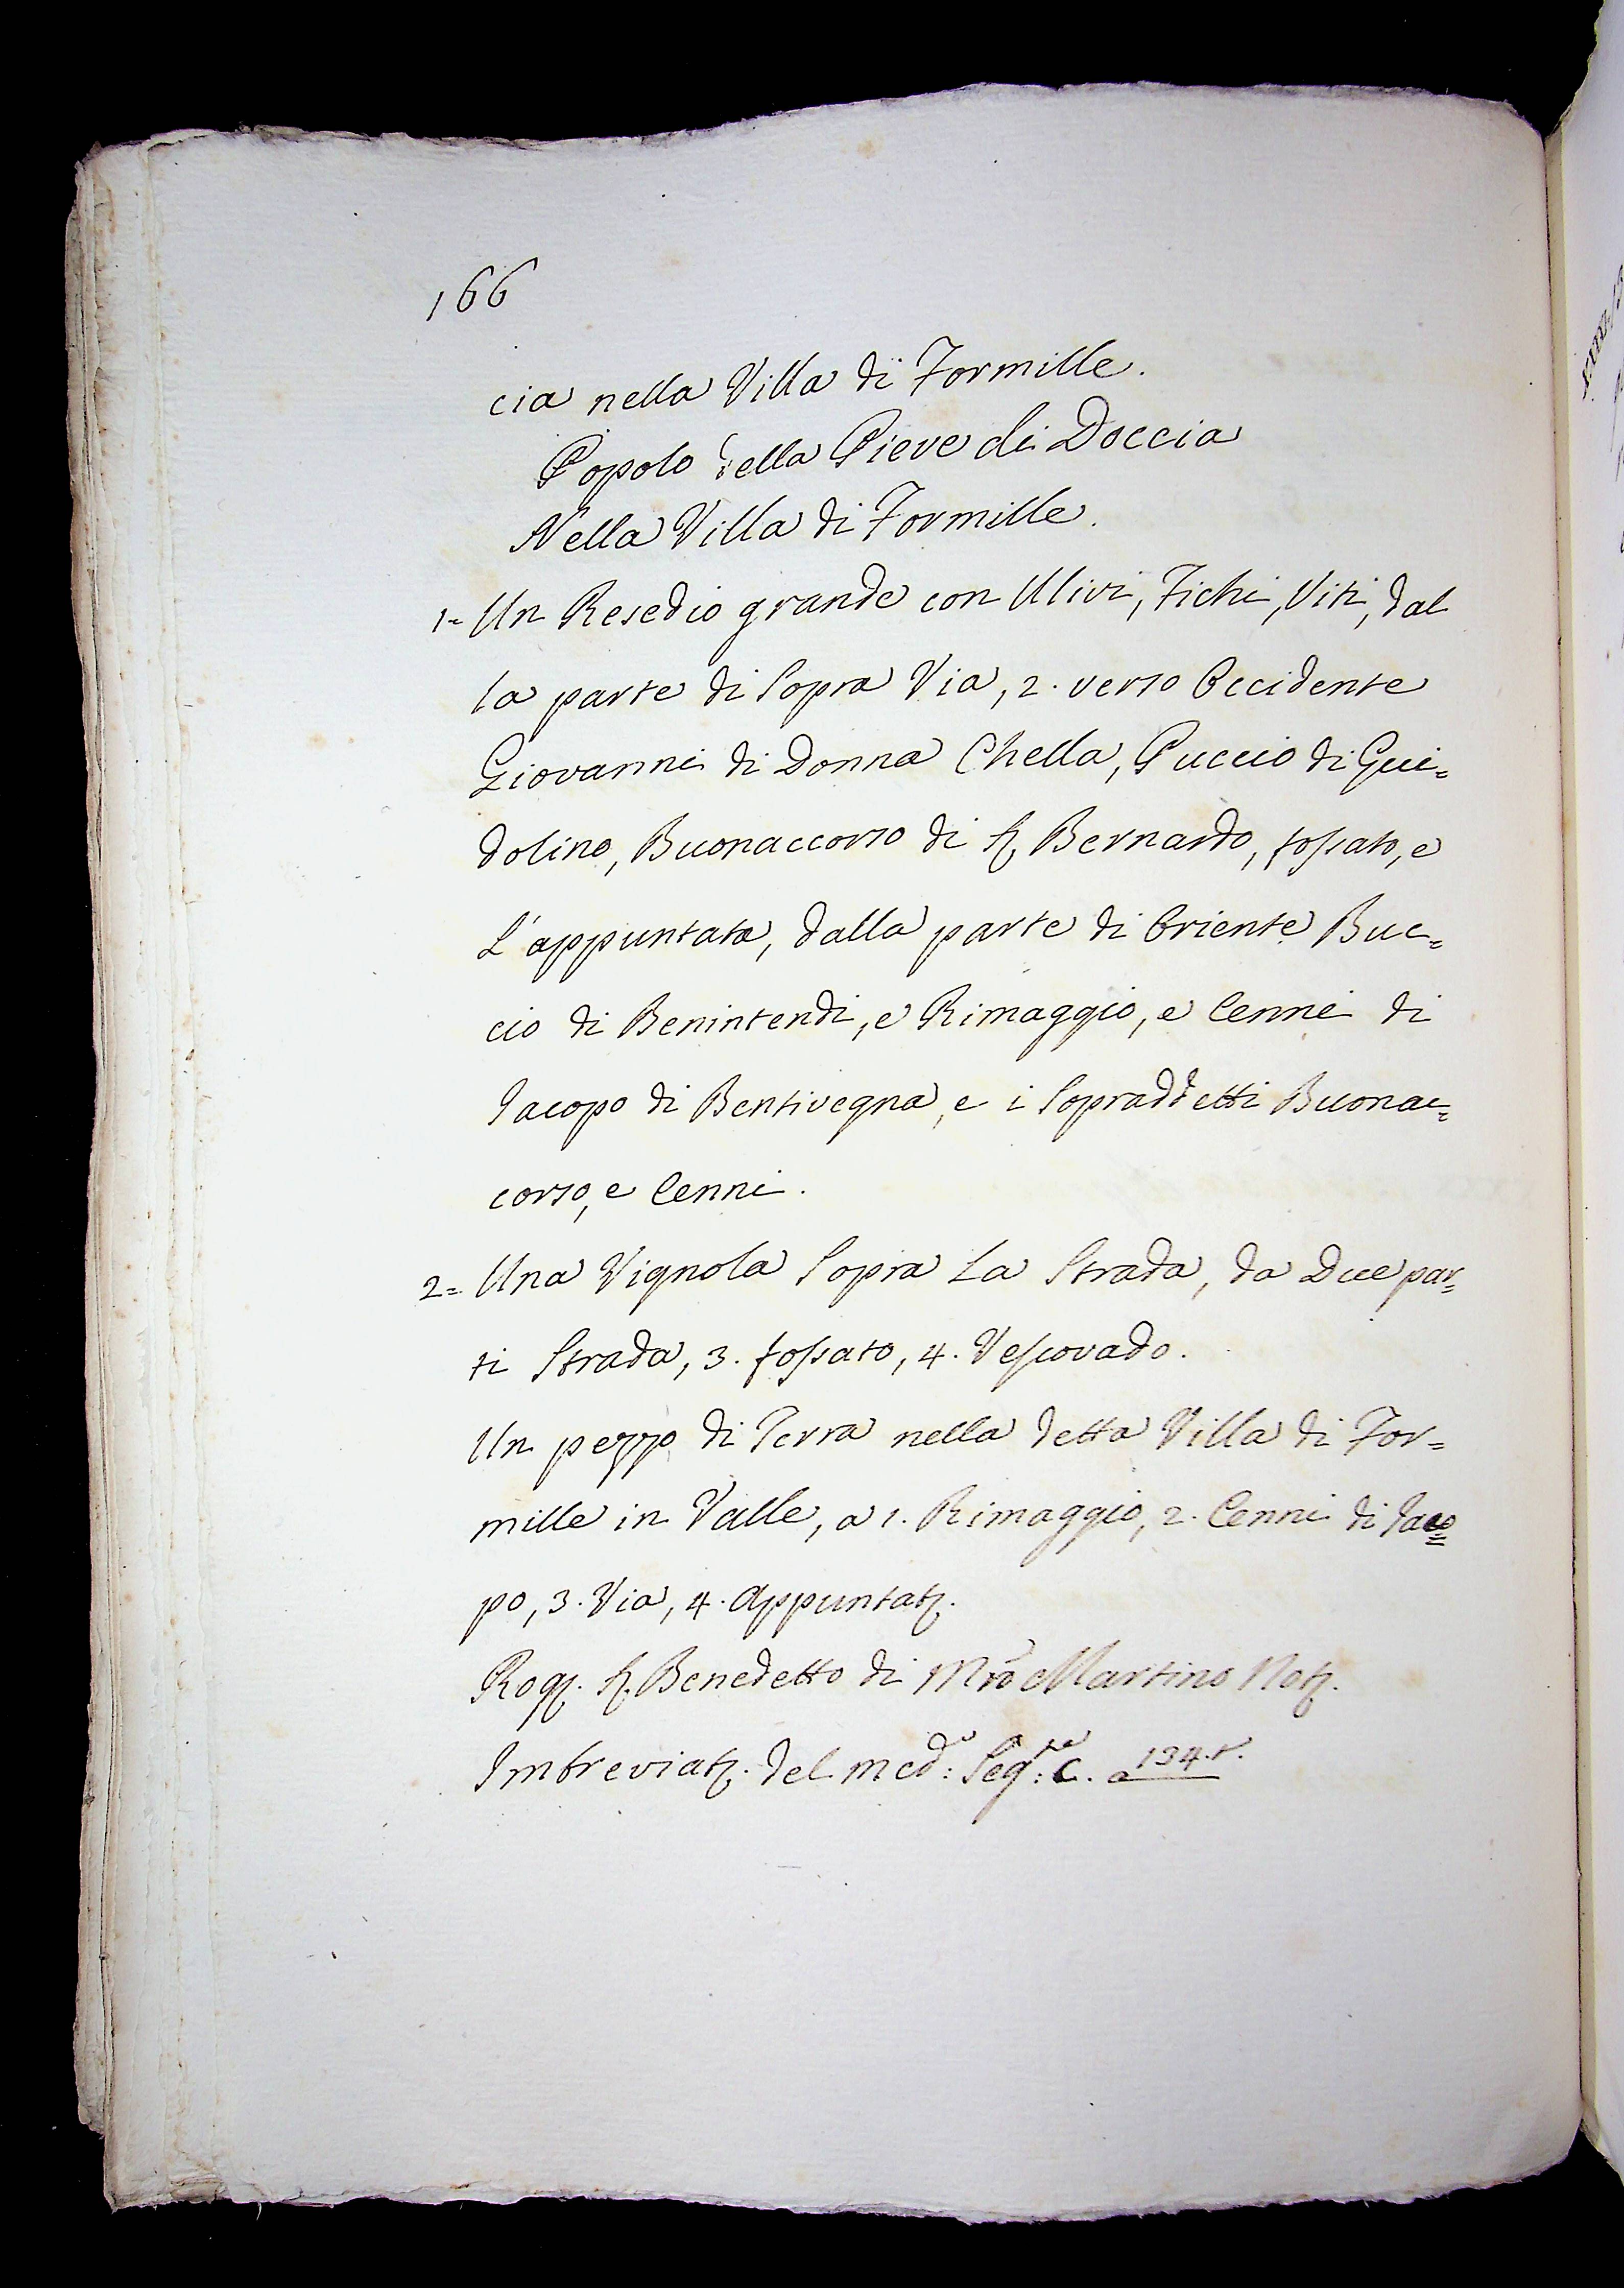 166
cia nella Villa di Formille.
Popolo della Pieve di Doccia
Nella Villa di Formille.
1= Un Resedio grande con Ulivi, Fichi, Viti, dal
la parte di Sopra Via, 2. verso Occidente
Giovanni di Donna Chella, Puccio di Gui=
dolino, Buonaccorso di S. Bernardo, fossato, e
L'appuntata, dalla parte di Oriente Buc=
cio di Benintendi, e Rimaggio, e Cenni di
Jacopo di Bentivegna, e i Sopraddetti Buonac=
corso, e Cenni.
2= Una Vignola Sopra La Strada, da Due par=
ti Strada, 3. fossato, 4. Vescovado.
Un pezzo di Terra nella detta Villa di For=
mille in Valle, a 1. Rimaggio, 2. Cenni di Jaco=
po, 3. Via, 4. Appuntat.
Rog. S. Benedetto di Mro Martino Not.
Imbreviat. del med:o Seg:te c. a 134. t.